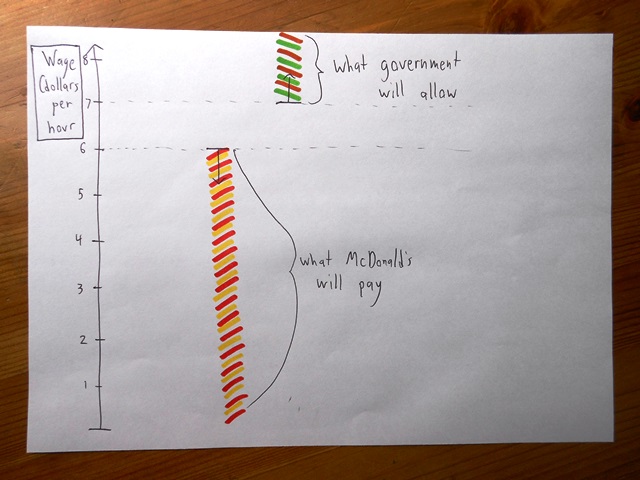 Wage
(dollars
per
hour
8
7
6
5
4
3
2
1
what government
will allow
what McDonald's
will pay